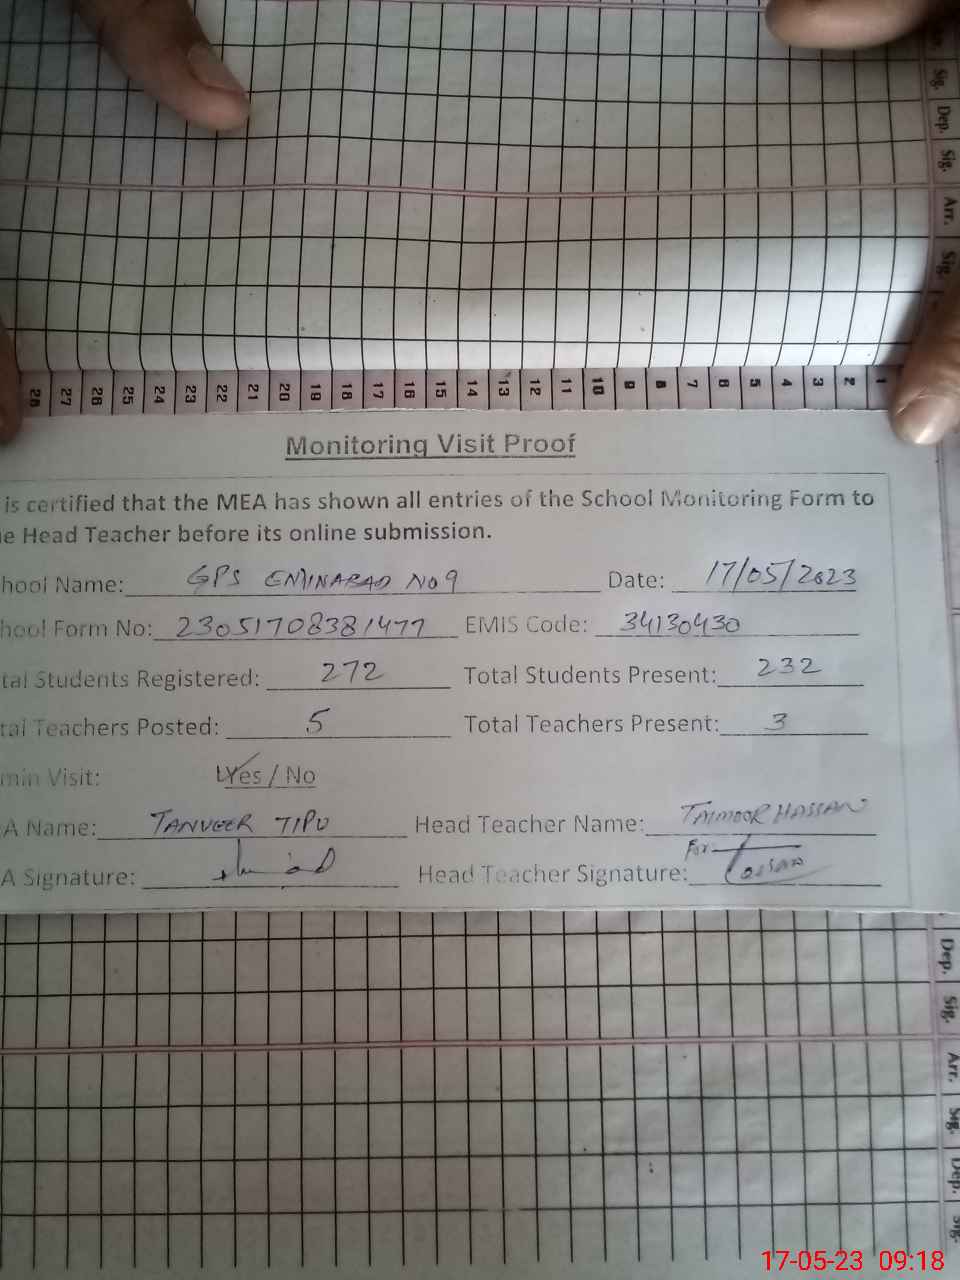 ar. Sig. Dep. Sig. Arr. Sig.
28 27 26 25 24 23 22 21 20 19 18 17 16 15 14 13 12 11 10 9 8 7 6 5 4 3 2 1
Monitoring Visit Proof
is certified that the MEA has shown all entries of the School Monitoring Form to
e Head Teacher before its online submission.
hool Name: GPS EMINABAD NO 9 Date: 17/05/2023
hool Form No: 23051708381477 EMIS Code: 34130430
tal Students Registered: 272 Total Students Present: 232
tal Teachers Posted: 5 Total Teachers Present: 3
min Visit: Yes / No
A Name: TANVEER TIPU Head Teacher Name: TAIMOOR HASSAN
A Signature: Head Teacher Signature: For
Dep. Sig. Arr. Sig. Dep. Sig.
17-05-23 09:18